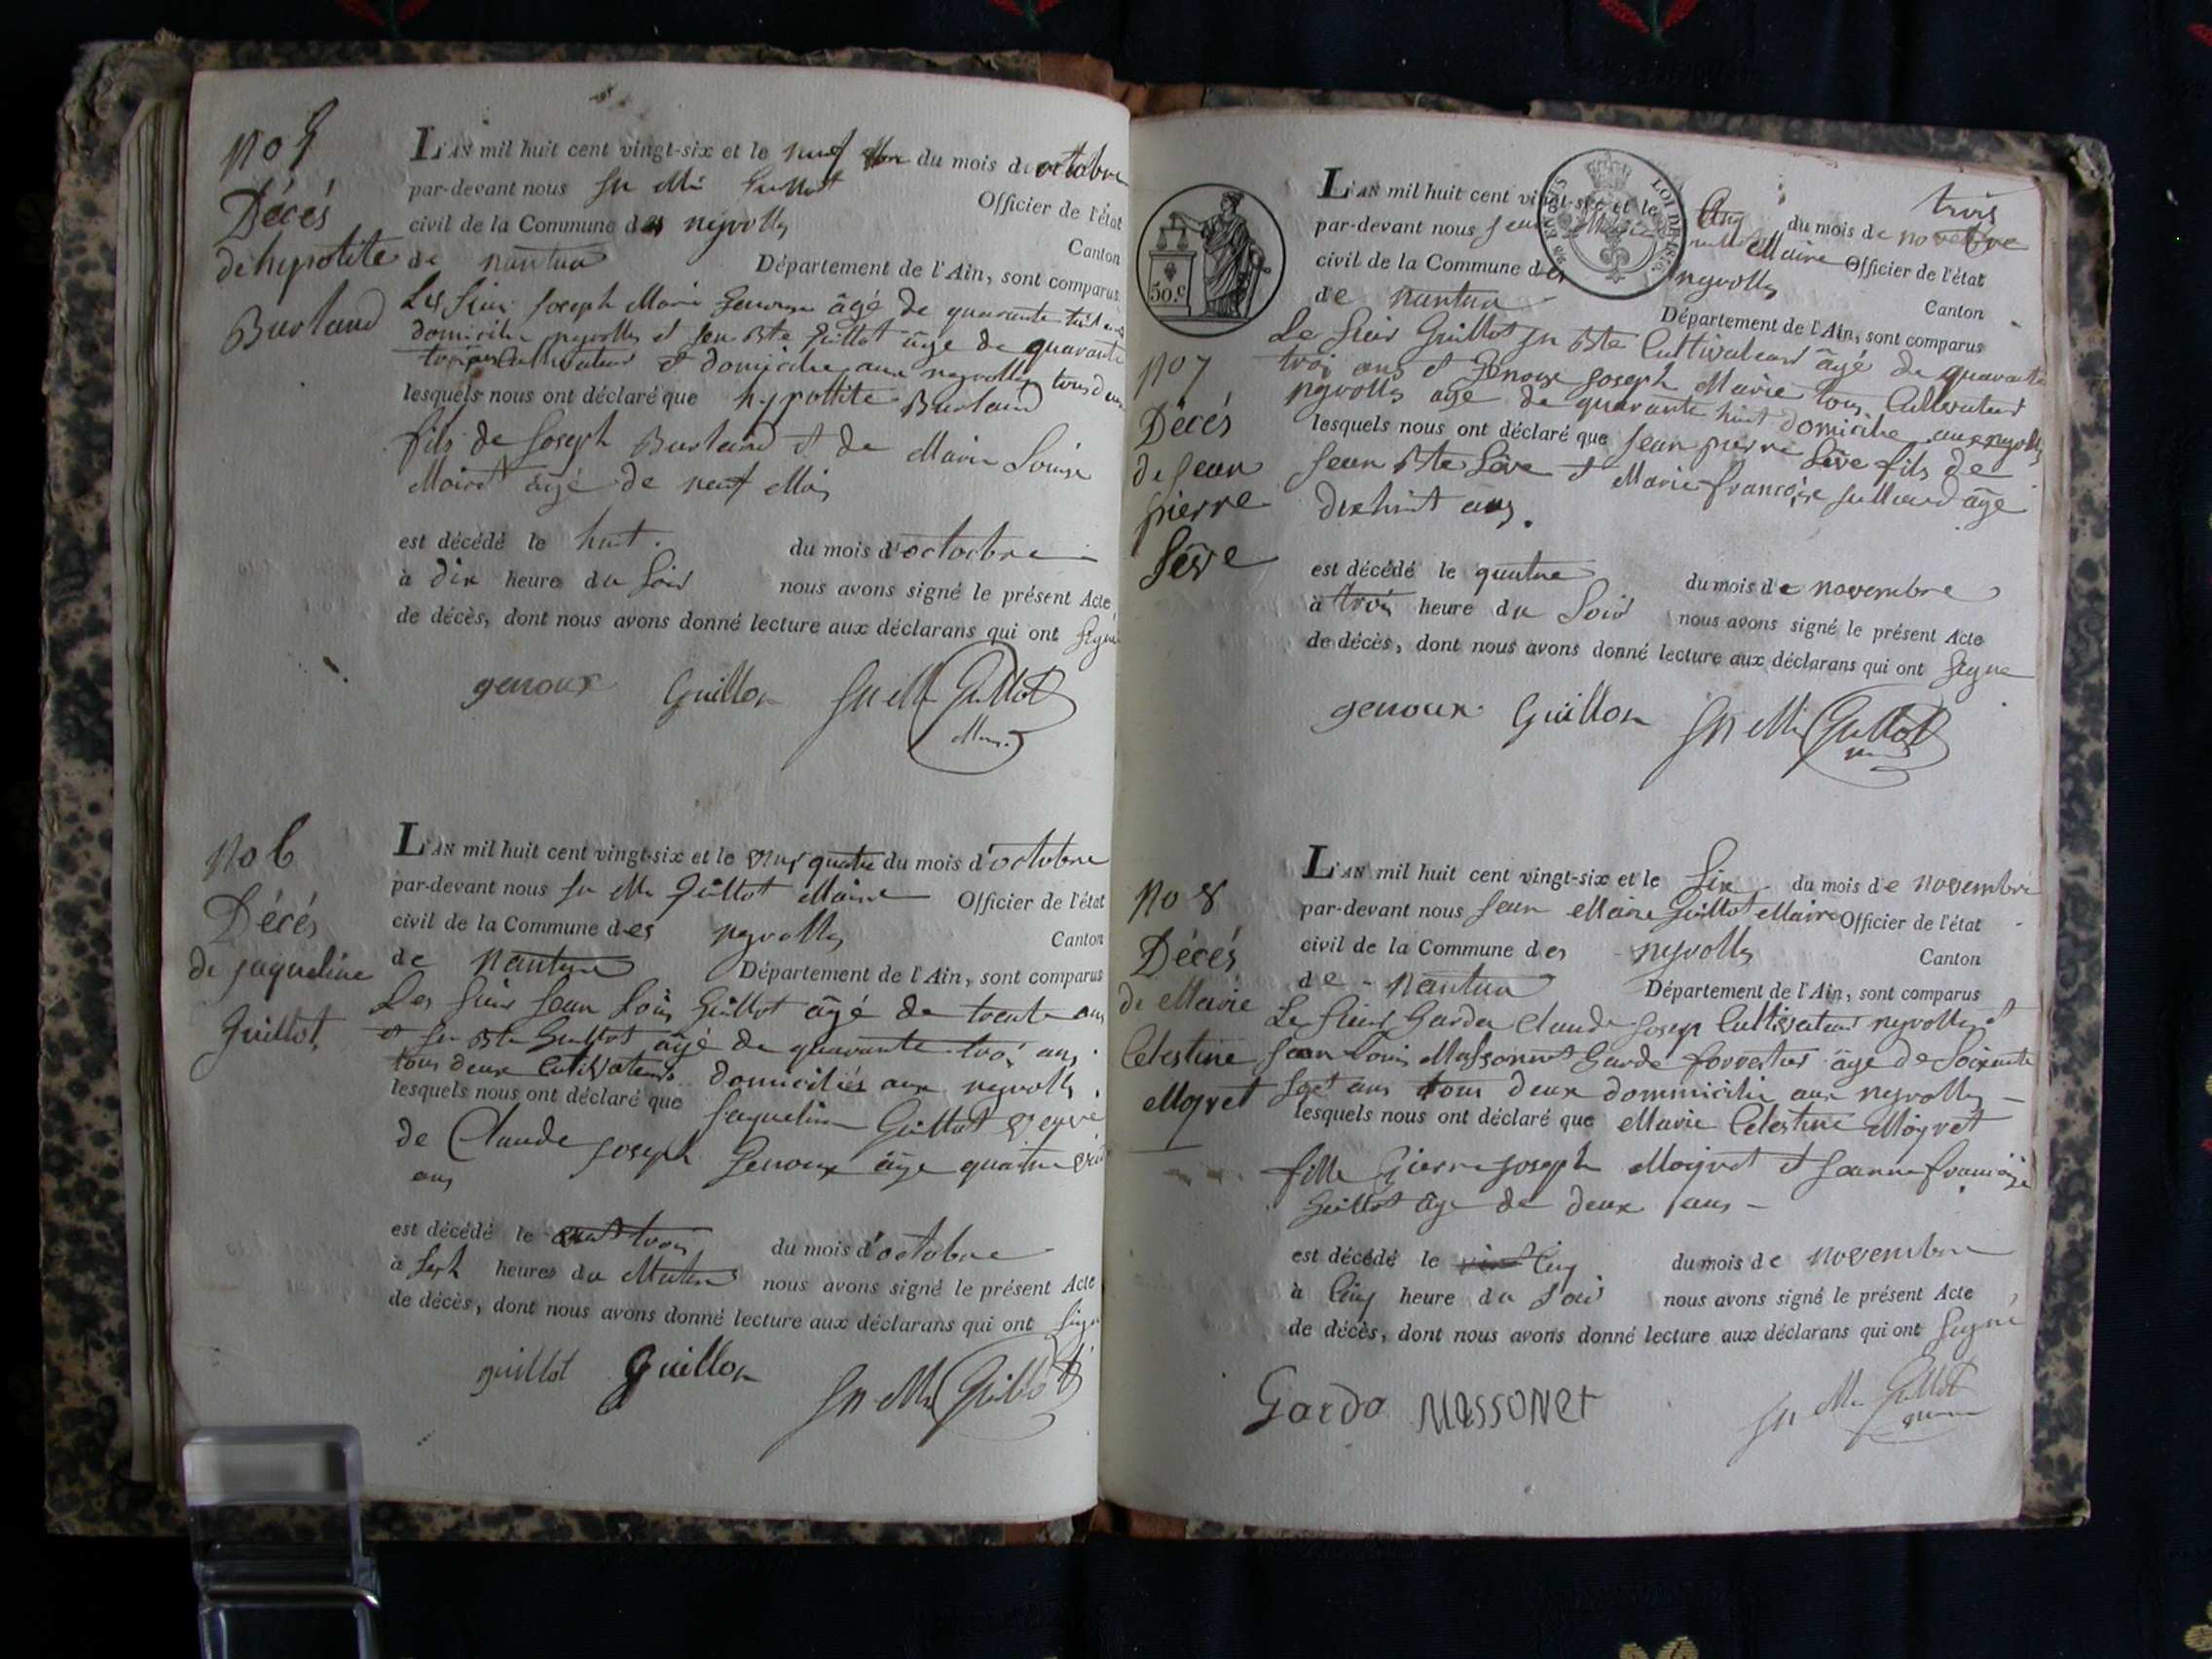 no 5
Décés
de hypolite
Burland
L'AN mil huit cent vingt-six et le neuf du mois d'octobre
par-devant nous jn Mie Guillot
Officier de l'état
civil de la Commune des neyrolles
Canton
de nantua
Département de l'Ain, sont comparus
Les sieur joseph Marie Genoux âgé de quarante huit ans
domicilie neyrolles et jean Bte Guillot âge de quarante
trois ans Cultivateur et domicilie aux neyrolles tous deux
lesquels nous ont déclaré que hypollite Burland
fils de joseph Burland et de Marie Louise
Moiret âgé de neuf Mois
est décédé le huit du mois d'octocbre
à dix heure du Soir nous avons signé le présent Acte
de décès, dont nous avons donné lecture aux déclarans qui ont Signe
genoux Guillon jn Mie Guillot
Maire
no 6
Décés
de jaqueline
Guillot
L'AN mil huit cent vingt-six et le quatre du mois d'octobre
par-devant nous jn Mie Guillot Maire Officier de l'état
civil de la Commune des neyrolles
Canton
de Nantua
Département de l'Ain, sont comparus
Les sieur jean Louis Guillot âgé de trente ans
et jn Bte Guillot âgé de quarante troi ans
tous deux Cultivateurs domiciliés aux neyrolles
lesquels nous ont déclaré que jaqueline Guillot veuve
de Claude joseph Genoux âge quatre
ans
est décédé le trois du mois d'octobre
à Sept heures du Matin nous avons signé le présent Acte
de décès, dont nous avons donné lecture aux déclarans qui ont Signe
guillot Guillon jn Mie Guillot
50.c
LOI DE 1816
no 7
Décés
de jean
pierre
Séve
trois
L'AN mil huit cent vingt-six et le Cinq du mois de novembre
par-devant nous jean Marie Guillot Maire Officier de l'état
civil de la Commune des neyrolles
Canton
de nantua
Département de l'Ain, sont comparus
Le sieur Guillot jn Bte Cultivateur âgé de quarante
troi ans et Genoux joseph Marie tous Cultivateur
neyrolles age de quarante huit domicilie aux neyrolles
lesquels nous ont déclaré que jean pierre Séve fils de
jean Bte Séve et Marie françoise âge
dixhuit ans.
est décédé le quatre du mois de novembre
à trois heure du Soir nous avons signé le présent Acte
de décès, dont nous avons donné lecture aux déclarans qui ont Signe
genoux Guillon jn Mie Guillot
no 8
Décés
de Marie
Celestine
Moyret
L'AN mil huit cent vingt-six et le Six du mois de novembre
par-devant nous jean Marie Guillot Maire Officier de l'état
civil de la Commune des neyrolles
Canton
de Nantua
Département de l'Ain, sont comparus
Le sieur Garda Claude joseph Cultivateur neyrolles et
jean Louis Massonnet Garde forrestier âge de Soixante
sept ans tous deux dommicilie aux neyrolles
lesquels nous ont déclaré que Marie Celestine Moyret
fille pierre joseph Moyret et jeanne françoise
Guillot âge de deux ans
est décédé le Cinq du mois de novembre
à Cinq heure du Soir nous avons signé le présent Acte
de décès, dont nous avons donné lecture aux déclarans qui ont Signé
Garda MassoNet jn Mie Guillot